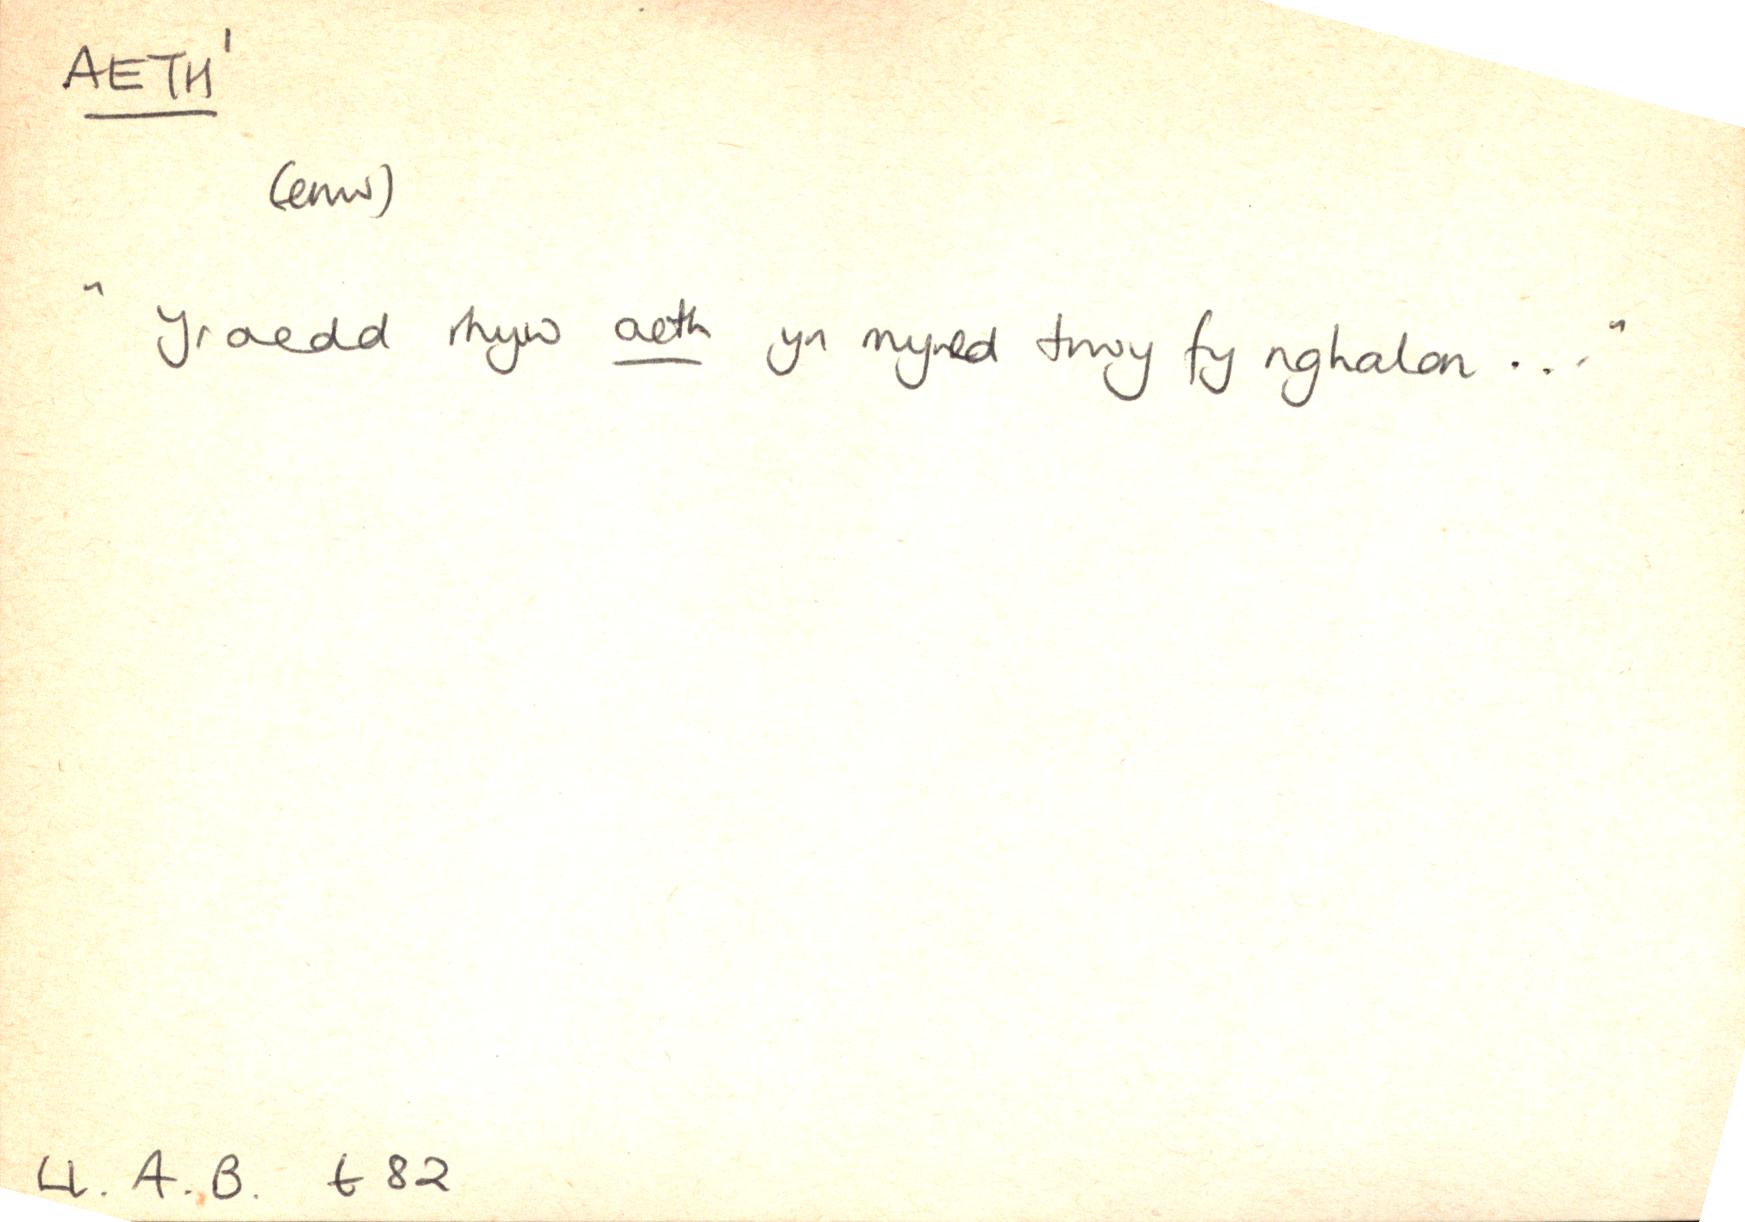 AETH¹
(enw)
" Yr aedd rhyw aeth yn myned trwy fy nghalon ... "
Ll. A. B. t 82